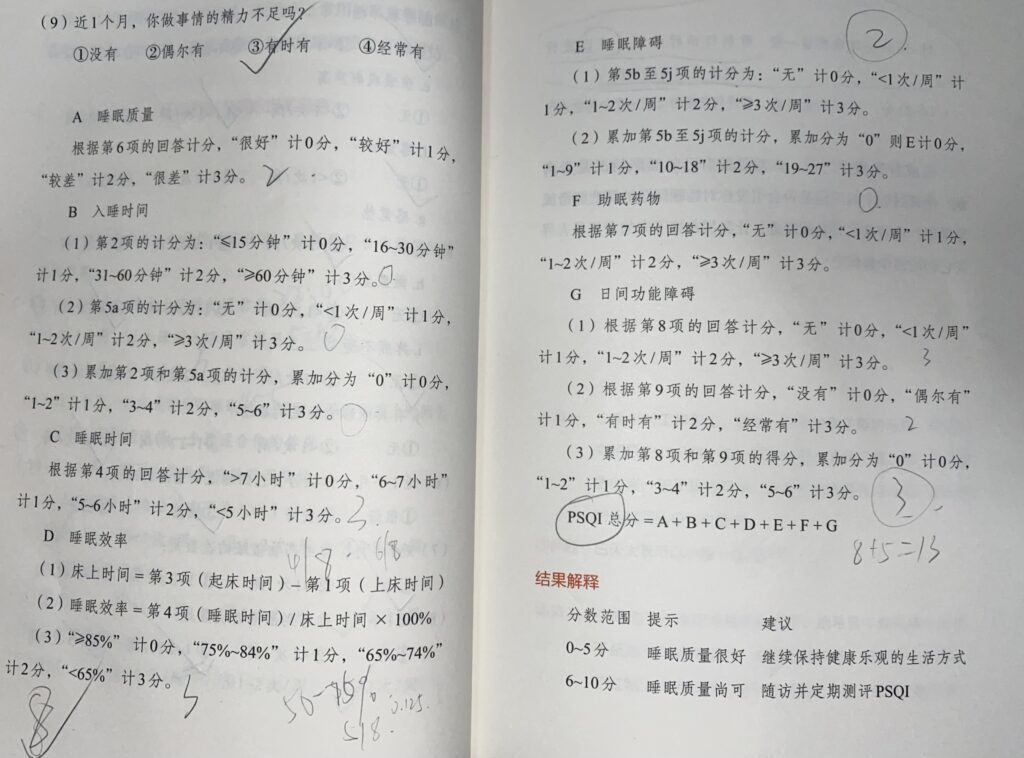 （9）近1个月，你做事情的精力不足吗？
①没有 ②偶尔有 ③有时有 ④经常有
A 睡眠质量
根据第6项的回答计分，“很好”计0分，“较好”计1分，
“较差”计2分，“很差”计3分。 2
B 入睡时间
（1）第2项的计分为：“≤15分钟”计0分，“16~30分钟”
计1分，“31~60分钟”计2分，“≥60分钟”计3分。0
（2）第5a项的计分为：“无”计0分，“<1次/周”计1分，
“1~2次/周”计2分，“≥3次/周”计3分。 0
（3）累加第2项和第5a项的计分，累加分为“0”计0分，
“1~2”计1分，“3~4”计2分，“5~6”计3分。 0
C 睡眠时间
根据第4项的回答计分，“>7小时”计0分，“6~7小时”
计1分，“5~6小时”计2分，“<5小时”计3分。3
D 睡眠效率 4/8 6/8
（1）床上时间＝第3项（起床时间）－第1项（上床时间）
（2）睡眠效率＝第4项（睡眠时间）/床上时间×100%
（3）“≥85%”计0分，“75%~84%”计1分，“65%~74%”
计2分，“<65%”计3分。 3
8
0.125
5/8
E 睡眠障碍 2
（1）第5b至5j项的计分为：“无”计0分，“<1次/周”计
1分，“1~2次/周”计2分，“≥3次/周”计3分。
（2）累加第5b至5j项的计分，累加分为“0”则E计0分，
“1~9”计1分，“10~18”计2分，“19~27”计3分。
F 助眠药物 0
根据第7项的回答计分，“无”计0分，“<1次/周”计1分，
“1~2次/周”计2分，“≥3次/周”计3分。
G 日间功能障碍
（1）根据第8项的回答计分，“无”计0分，“<1次/周”
计1分，“1~2次/周”计2分，“≥3次/周”计3分。 3
（2）根据第9项的回答计分，“没有”计0分，“偶尔有”
计1分，“有时有”计2分，“经常有”计3分。 2
（3）累加第8项和第9项的得分，累加分为“0”计0分，
“1~2”计1分，“3~4”计2分，“5~6”计3分。 3
PSQI总分＝A＋B＋C＋D＋E＋F＋G
8+5=13
结果解释
分数范围 提示 建议
0~5分 睡眠质量很好 继续保持健康乐观的生活方式
6~10分 睡眠质量尚可 随访并定期测评PSQI